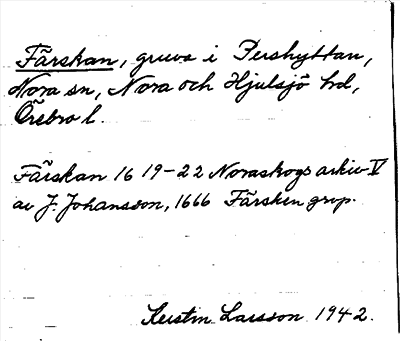 Färskan, gruva i Pershyttan,
Nora sn, Nora och Hjulsjö hd,
Örebro l.
Färskan 1619-22 Noraskogs arkiv V
av J. Johansson, 1666 Färsken grop.
Kerstin Larsson 1942.